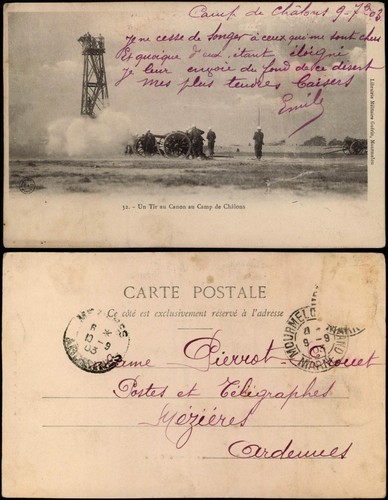 Camp de Châlons 9-7bre 03
Je ne cesse de songer à ceux qui me sont chers
Et quoique d'eux, étant éloigné
Je leur envoie du fond de ce désert
Mes plus tendres baisers
Emile
Librairie Militaire Guérin, Mourmelon
32. - Un Tir au Canon au Camp de Châlons
CARTE POSTALE
Ce côté est exclusivement réservé à l'adresse
MEZIERES
8
13 -9
03
ARDENNES
MOURMELON
8
9 -9
03
MARNE
Madame Pierrot
Postes et Télégraphes
Mézières
Ardennes